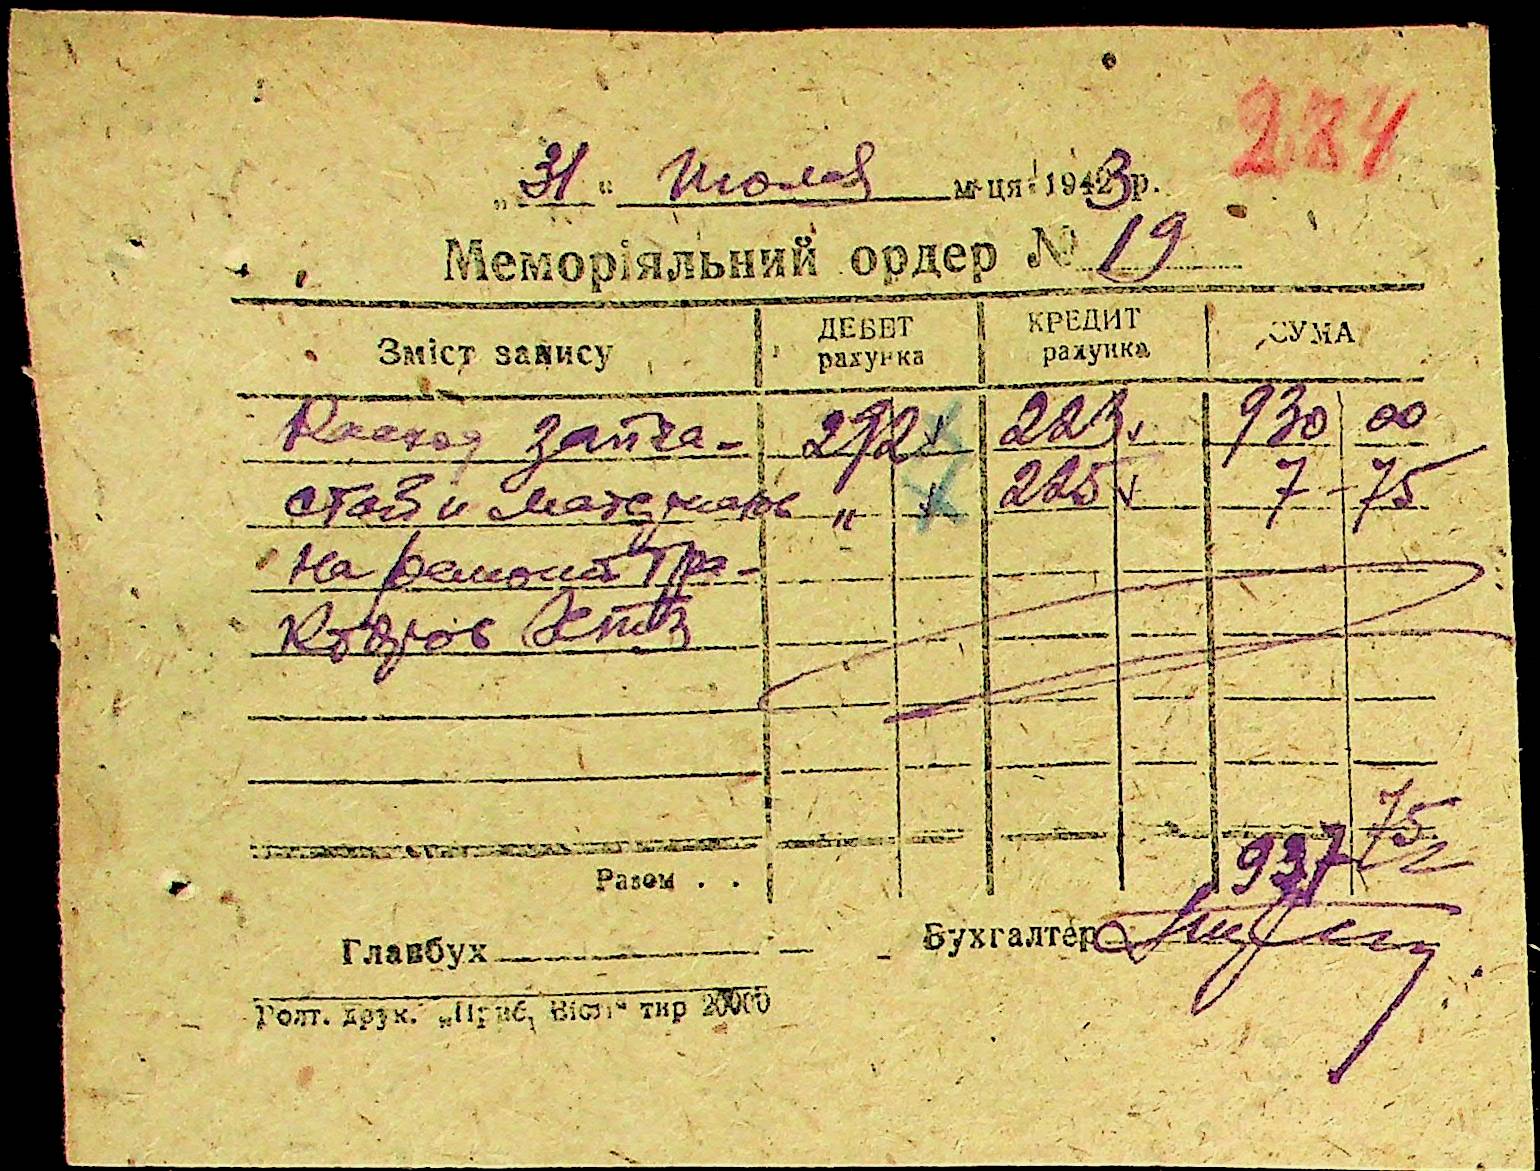 284
„31“ Июля м-ця 1943 р.
Меморіяльний ордер № 19
Зміст запису ДЕБЕТ рахунка КРЕДИТ рахунка СУМА
Расход запча- 292 223 930 00
стей и материалов " 225 7-75
на ремонт тра-
кторов ХТЗ
937 75
Разом . .
Главбух Бухгалтер
Голт. друк. „Приб. Вісти“ тир 20000